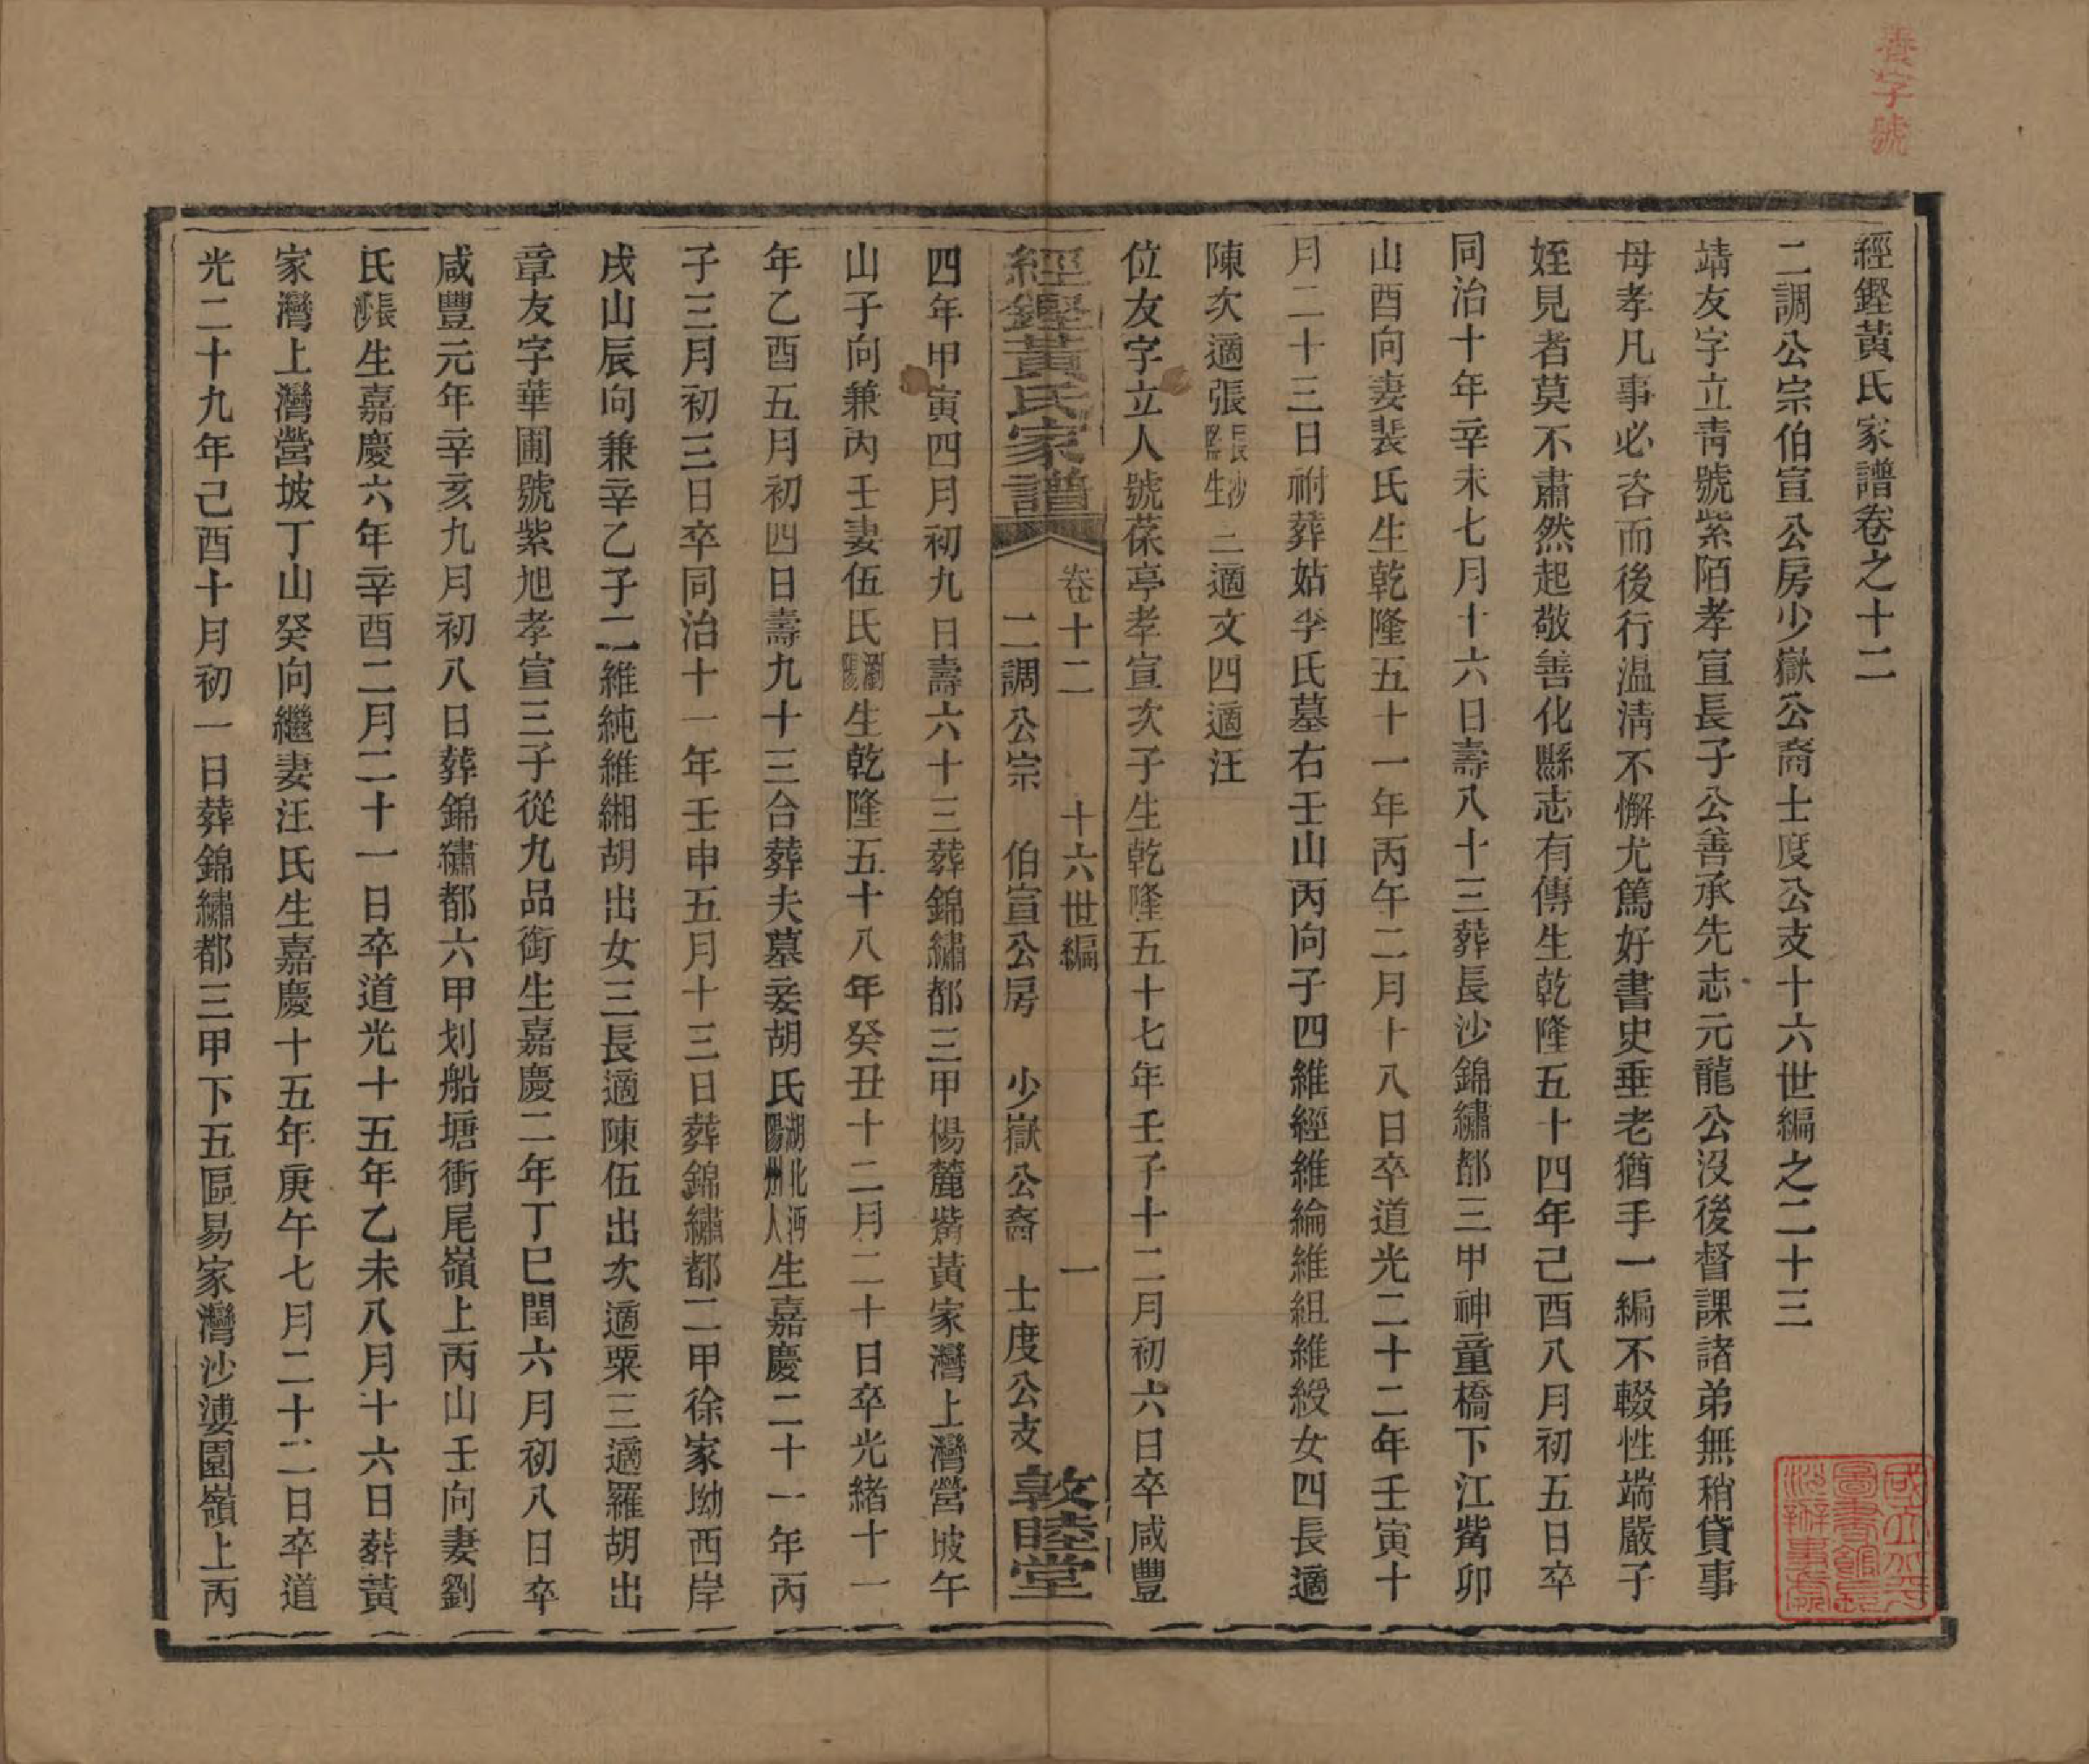 善字號
經鏗黃氏家譜卷之十二
二調公宗伯宣公房少嶽公裔士度公支十六世編之二十三
靖友字立靑號紫陌孝宣長子公善承先志元龍公沒後督課諸弟無稍貸事
母孝凡事必咨而後行温清不懈尤篤好書史垂老猶手一編不輟性端嚴子
姪見者莫不肅然起敬善化縣志有傳生乾隆五十四年己酉八月初五日卒
同治十年辛未七月十六日壽八十三葬長沙錦繡都三甲神童橋下江觜卯
山酉向妻裴氏生乾隆五十一年丙午二月十八日卒道光二十二年壬寅十
月二十三日祔葬姑李氏墓右壬山丙向子四維經維綸維組維綬女四長適
陳次適張長沙縣生三適文四適汪
位友字立人號葆亭孝宣次子生乾隆五十七年壬子十二月初六日卒咸豐
經鏗黃氏家譜 卷十二 十六世編 一
二調公宗 伯宣公房 少嶽公裔 士度公支 敦睦堂
四年甲寅四月初九日壽六十三葬錦繡都三甲楊麓觜黃家灣上灣營坡午
山子向兼丙壬妻伍氏瀏陽生乾隆五十八年癸丑十二月二十日卒光緒十一
年乙酉五月初四日壽九十三合葬夫墓妾胡氏湖北沔陽州人生嘉慶二十一年丙
子三月初三日卒同治十一年壬申五月十三日葬錦繡都二甲徐家坳西岸
戌山辰向兼辛乙子二維純維緗胡出女三長適陳伍出次適粟三適羅胡出
章友字華圃號紫旭孝宣三子從九品銜生嘉慶二年丁巳閏六月初八日卒
咸豐元年辛亥九月初八日葬錦繡都六甲划船塘衝尾嶺上丙山壬向妻劉
氏長沙生嘉慶六年辛酉二月二十一日卒道光十五年乙未八月十六日葬黃
家灣上灣營坡丁山癸向繼妻汪氏生嘉慶十五年庚午七月二十二日卒道
光二十九年己酉十月初一日葬錦繡都三甲下五區易家灣沙漊園嶺上丙
國立北平圖書館長沙辦事處